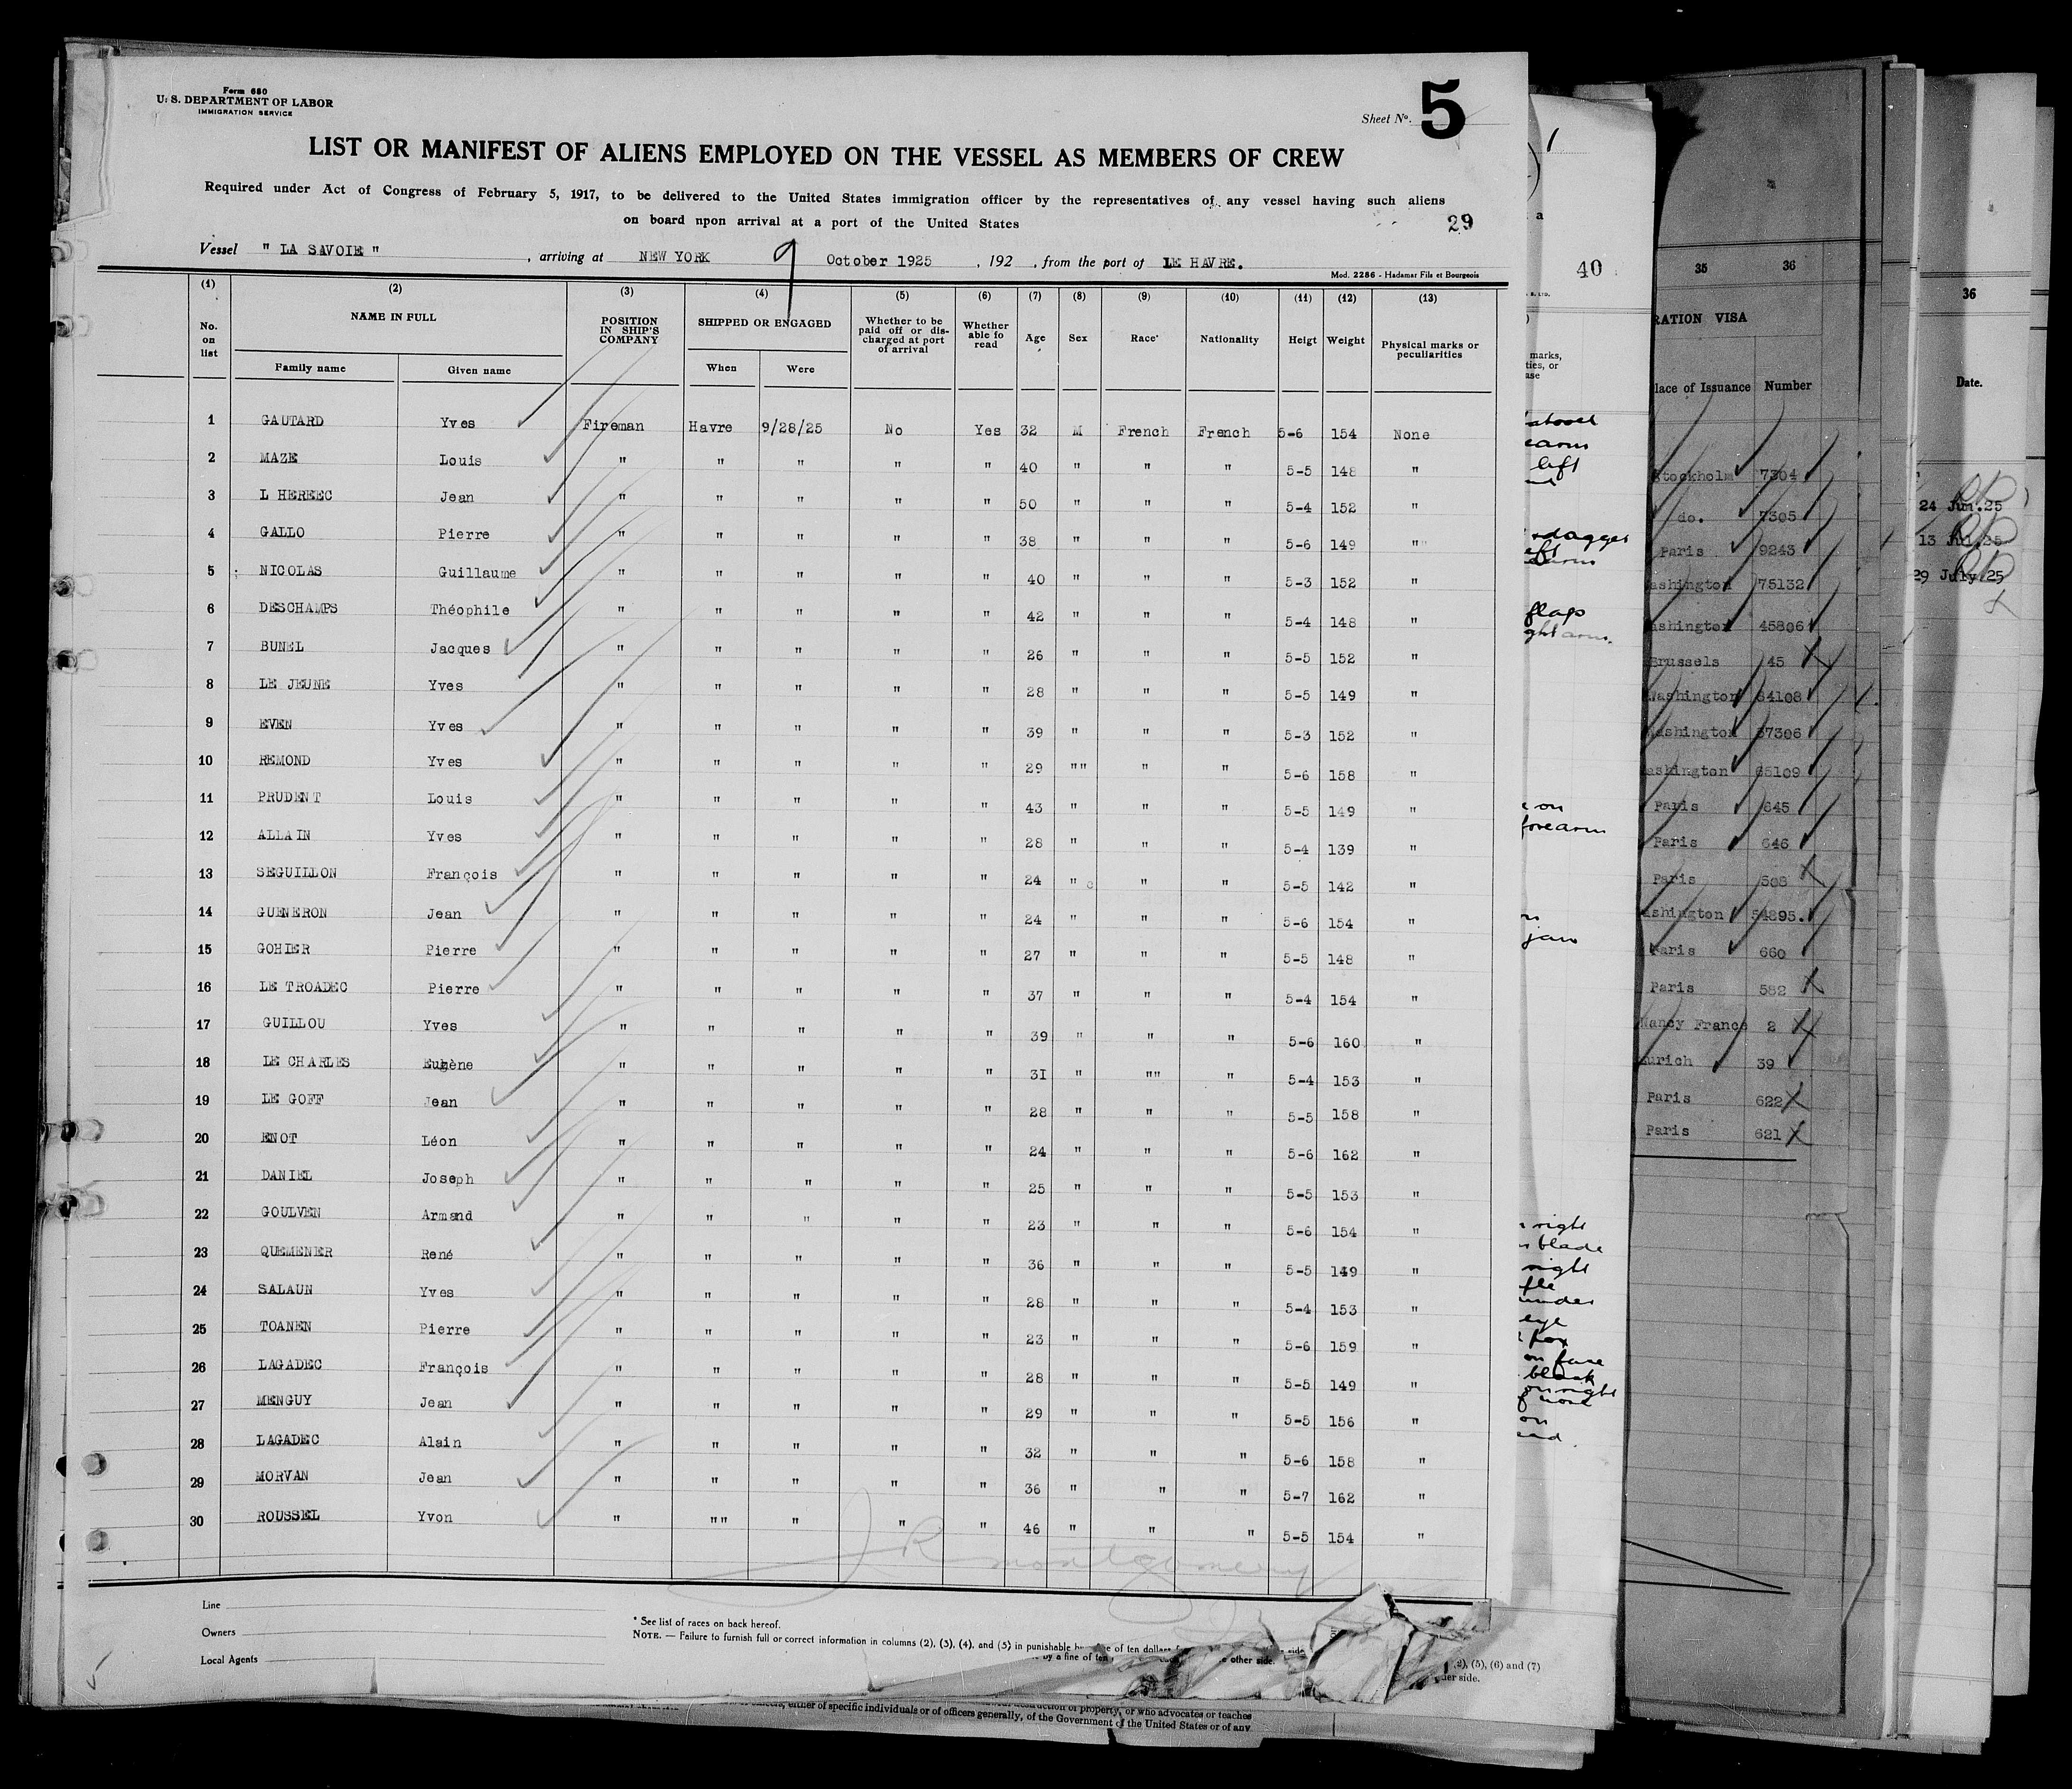 Form 680
U. S. DEPARTMENT OF LABOR
IMMIGRATION SERVICE
Sheet No. 5
LIST OR MANIFEST OF ALIENS EMPLOYED ON THE VESSEL AS MEMBERS OF CREW
Required under Act of Congress of February 5, 1917, to be delivered to the United States immigration officer by the representatives of any vessel having such aliens
on board npon arrival at a port of the United States
29
Vessel " LA SAVOIE " , arriving at NEW YORK 9 October 1925 , 192 , from the port of LE HAVRE.
Mod. 2286 - Hadamar Fils et Bourgeois
(1) (2) (3) (4) (5) (6) (7) (8) (9) (10) (11) (12) (13)
No. on list NAME IN FULL POSITION IN SHIP'S COMPANY SHIPPED OR ENGAGED Whether to be paid off or discharged at port of arrival Whether able fo read Age Sex Race* Nationality Heigt Weight Physical marks or peculiarities
Family name Given name When Were
1 GAUTARD Yves Fireman Havre 9/28/25 No Yes 32 M French French 5-6 154 None
2 MAZE Louis " " " " " 40 " " " 5-5 148 "
3 L HEREEC Jean " " " " " 50 " " " 5-4 152 "
4 GALLO Pierre " " " " " 38 " " " 5-6 149 "
5 NICOLAS Guillaume " " " " " 40 " " " 5-3 152 "
6 DESCHAMPS Théophile " " " " " 42 " " " 5-4 148 "
7 BUNEL Jacques " " " " " 26 " " " 5-5 152 "
8 LE JEUNE Yves " " " " " 28 " " " 5-5 149 "
9 EVEN Yves " " " " " 39 " " " 5-3 152 "
10 REMOND Yves " " " " " 29 "" " " 5-6 158 "
11 PRUDENT Louis " " " " " 43 " " " 5-5 149 "
12 ALLAIN Yves " " " " " 28 " " " 5-4 139 "
13 SEGUILLON François " " " " " 24 " " " 5-5 142 "
14 GUENERON Jean " " " " " 24 " " " 5-6 154 "
15 GOHIER Pierre " " " " " 27 " " " 5-5 148 "
16 LE TROADEC Pierre " " " " " 37 " " " 5-4 154 "
17 GUILLOU Yves " " " " " 39 " " " 5-6 160 "
18 LE CHARLES Eugène " " " " " 31 " "" " 5-4 153 "
19 LE GOFF Jean " " " " " 28 " " " 5-5 158 "
20 ENOT Léon " " " " " 24 " " " 5-6 162 "
21 DANIEL Joseph " " " " " 25 " " " 5-5 153 "
22 GOULVEN Armand " " " " " 23 " " " 5-6 154 "
23 QUEMENER René " " " " " 36 " " " 5-5 149 "
24 SALAUN Yves " " " " " 28 " " " 5-4 153 "
25 TOANEN Pierre " " " " " 23 " " " 5-6 159 "
26 LAGADEC François " " " " " 28 " " " 5-5 149 "
27 MENGUY Jean " " " " " 29 " " " 5-5 156 "
28 LAGADEC Alain " " " " " 32 " " " 5-6 158 "
29 MORVAN Jean " " " " " 36 " " " 5-7 162 "
30 ROUSSEL Yvon " "" " " " 46 " " " 5-5 154 "
J R Montgomery
Line
Owners
Local Agents
* See list of races on back hereof.
NOTE. — Failure to furnish full or correct information in columns (2), (3), (4), and (5) in punishable
by a fine of ten
other side.
2), (5), (6) and (7)
side.
5
either of specific individuals or of officers generally, of the Government of the United States or of any
property, or who advocates or teaches
40
marks,
left
dagger
flags
forearm
jaw
right
blade
right
under
eye
on face
black
on right
on
35 36
RATION VISA
lace of Issuance Number
Stockholm 7304
do. 7305
Paris 9243
ashington 75132
ashington 45806
Brussels 45
Washington 64108
Washington 37306
ashington 65109
Paris 645
Paris 646
Paris 508
ashington 54895.
Paris 660
Paris 582
Nancy France 2
Zurich 39
Paris 622
Paris 621
36
Date.
24 Jun.25
13 Jul.25
29 July.25